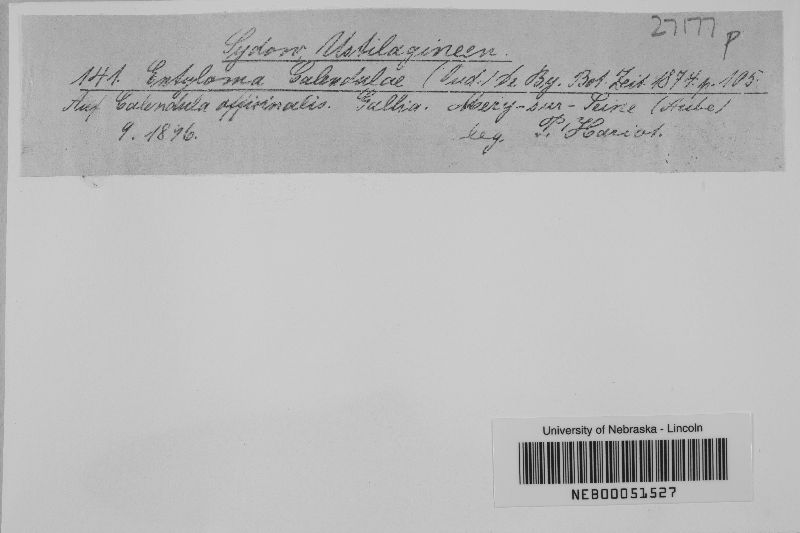 27177 P
Sydow, Ustilagineen.
141. Entyloma Calendulae (Oud.) De By. Bot. Zeit. 1874. p. 105.
Auf Calendula officinalis. Gallia. Méry-sur-Seine (Aube)
9. 1896. leg. P. Hariot.
University of Nebraska - Lincoln
NEB00051527